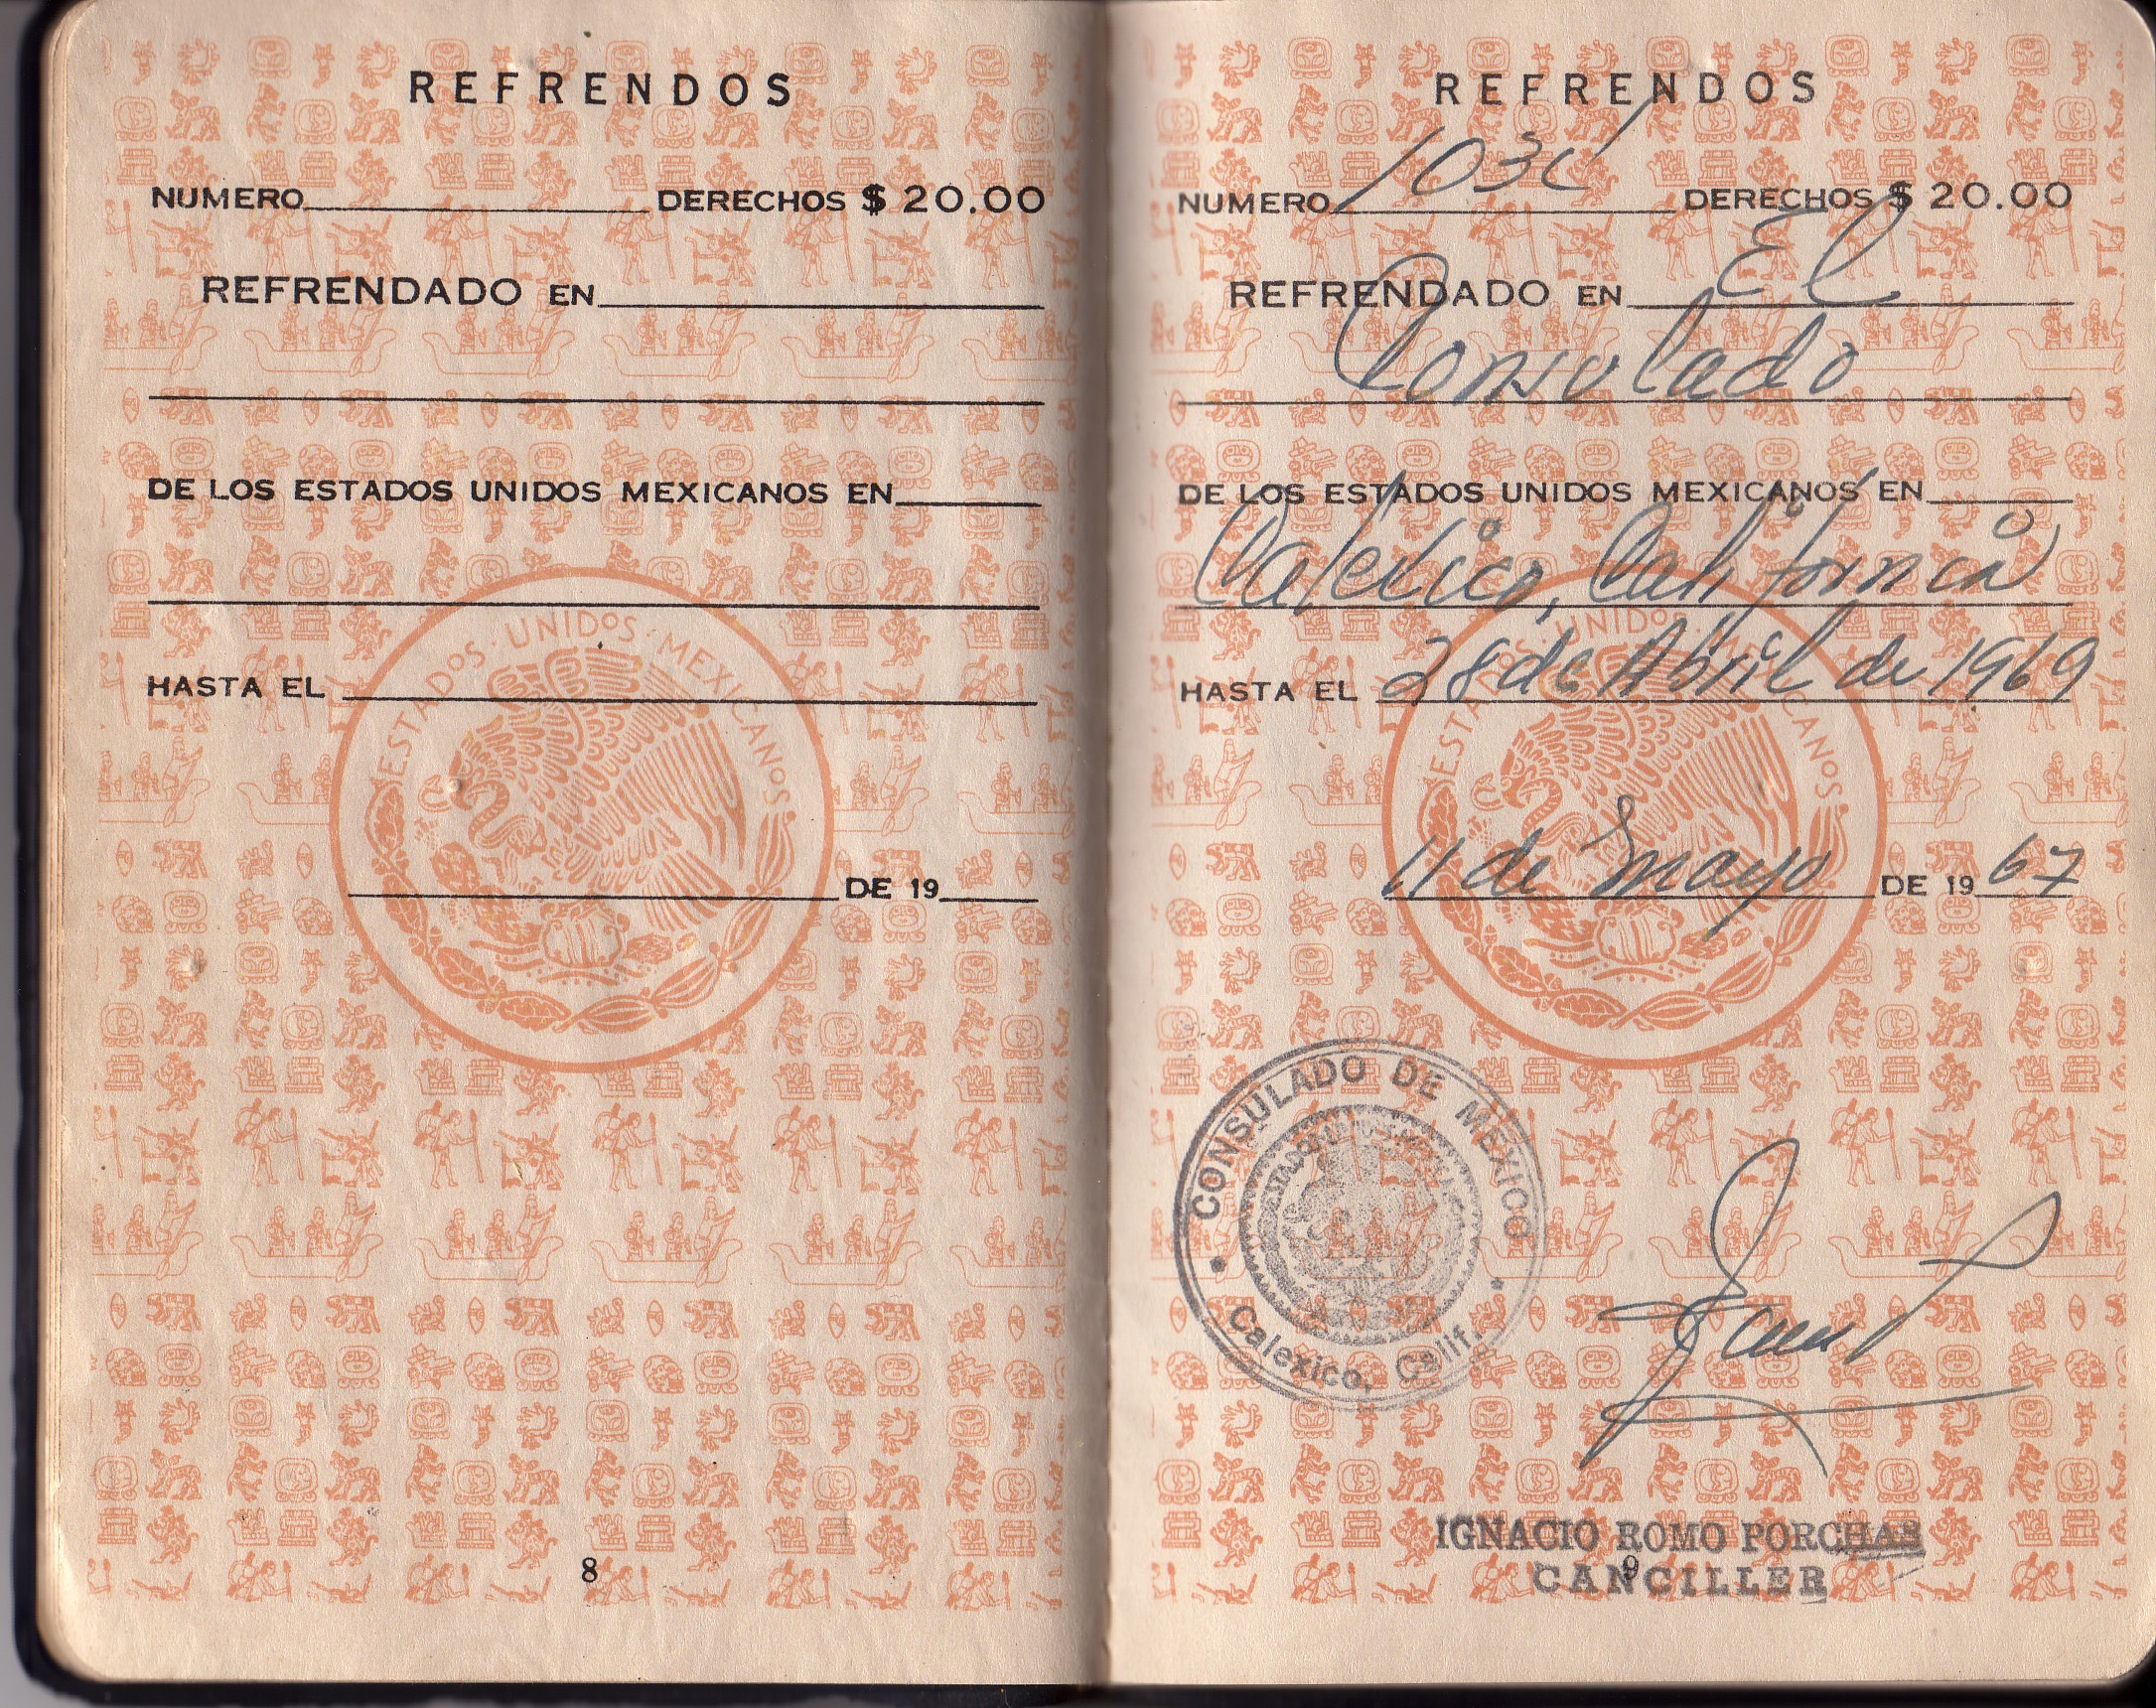 REFRENDOS
NUMERO DERECHOS $ 20.00
REFRENDADO EN
DE LOS ESTADOS UNIDOS MEXICANOS EN
ESTADOS · UNIDOS · MEXICANOS
HASTA EL
DE 19
8
REFRENDOS
NUMERO DERECHOS $ 20.00
REFRENDADO EN El
Consulado
DE LOS ESTADOS UNIDOS MEXICANOS EN
Calexico, California
ESTADOS · UNIDOS · MEXICANOS
HASTA EL 28 de Abril de 1969
11 de mayo DE 19 67
CONSULADO DE MEXICO
Calexico, Calif.
IGNACIO ROMO PORCHAS
9
CANCILLER